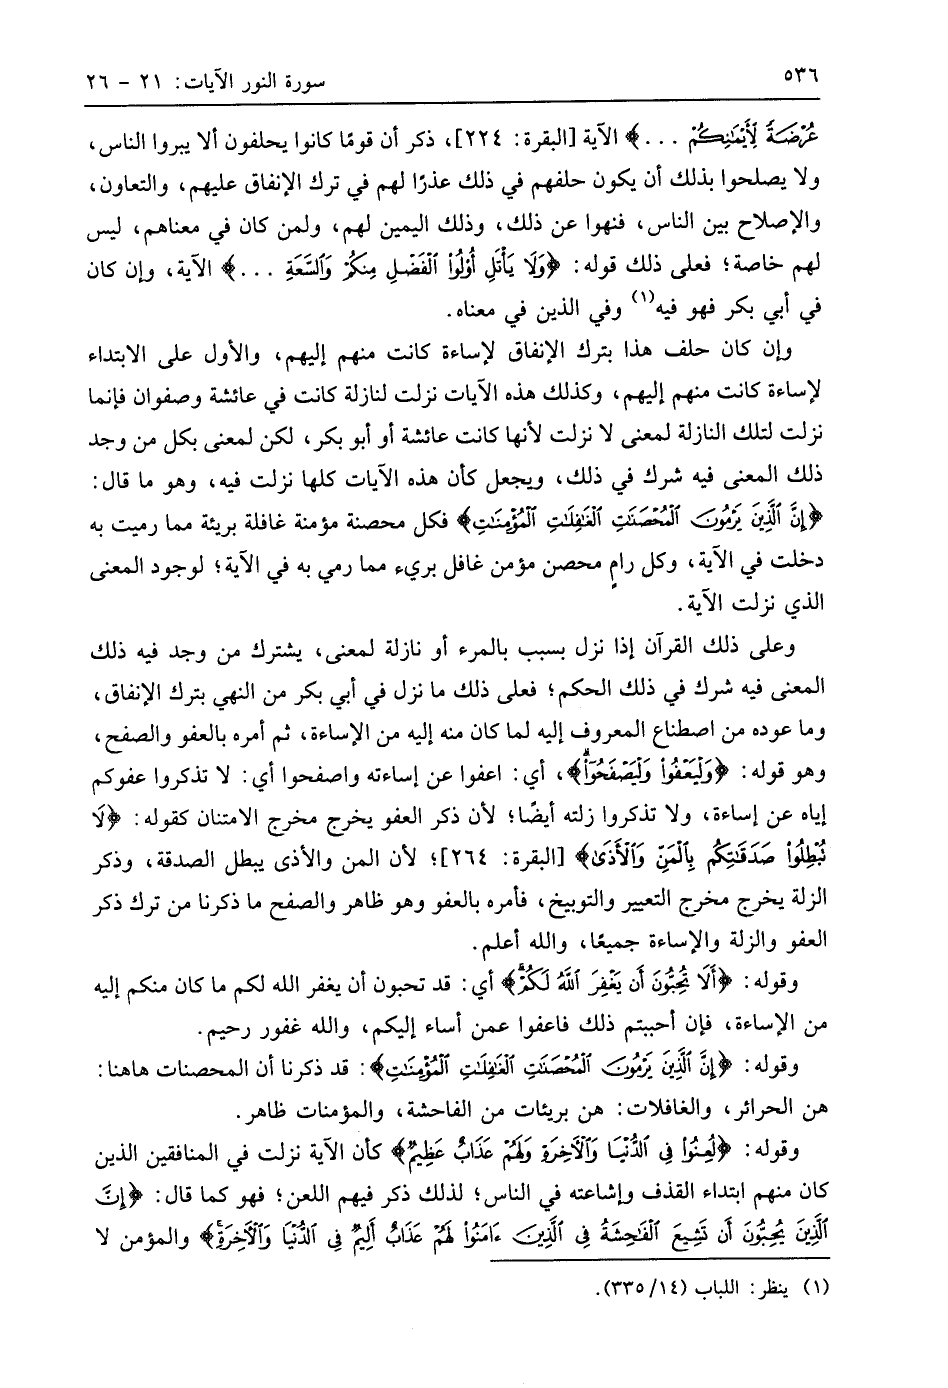 ٥٣٦
سورة النور الآيات: ٢١ - ٢٦
عُرْضَةً لِّأَيْمَانِكُمْ ...﴾ الآية [البقرة: ٢٢٤]، ذكر أن قومًا كانوا يحلفون ألا يبروا الناس،
ولا يصلحوا بذلك أن يكون حلفهم في ذلك عذرًا لهم في ترك الإنفاق عليهم، والتعاون،
والإصلاح بين الناس، فنهوا عن ذلك، وذلك اليمين لهم، ولمن كان في معناهم، ليس
لهم خاصة؛ فعلى ذلك قوله: ﴿وَلَا يَأْتَلِ أُوْلُواْ ٱلْفَضْلِ مِنكُمْ وَٱلسَّعَةِ ...﴾ الآية، وإن كان
في أبي بكر فهو فيه(١) وفي الذين في معناه.
وإن كان حلف هذا بترك الإنفاق لإساءة كانت منهم إليهم، والأول على الابتداء
لإساءة كانت منهم إليهم، وكذلك هذه الآيات نزلت لنازلة كانت في عائشة وصفوان فإنما
نزلت لتلك النازلة لمعنى لا نزلت لأنها كانت عائشة أو أبو بكر، لكن لمعنى بكل من وجد
ذلك المعنى فيه شرك في ذلك، ويجعل كأن هذه الآيات كلها نزلت فيه، وهو ما قال:
﴿إِنَّ ٱلَّذِينَ يَرْمُونَ ٱلْمُحْصَنَٰتِ ٱلْغَٰفِلَٰتِ ٱلْمُؤْمِنَٰتِ﴾ فكل محصنة مؤمنة غافلة بريئة مما رميت به
دخلت في الآية، وكل رامٍ محصن مؤمن غافل بريء مما رمي به في الآية؛ لوجود المعنى
الذي نزلت الآية.
وعلى ذلك القرآن إذا نزل بسبب بالمرء أو نازلة لمعنى، يشترك من وجد فيه ذلك
المعنى فيه شرك في ذلك الحكم؛ فعلى ذلك ما نزل في أبي بكر من النهي بترك الإنفاق،
وما عوده من اصطناع المعروف إليه لما كان منه إليه من الإساءة، ثم أمره بالعفو والصفح،
وهو قوله: ﴿وَلْيَعْفُواْ وَلْيَصْفَحُوٓاْ﴾، أي: اعفوا عن إساءته واصفحوا أي: لا تذكروا عفوكم
إياه عن إساءة، ولا تذكروا زلته أيضًا؛ لأن ذكر العفو يخرج مخرج الامتنان كقوله: ﴿لَا
تُبْطِلُواْ صَدَقَٰتِكُم بِٱلْمَنِّ وَٱلْأَذَىٰ﴾ [البقرة: ٢٦٤]؛ لأن المن والأذى يبطل الصدقة، وذكر
الزلة يخرج مخرج التعيير والتوبيخ، فأمره بالعفو وهو ظاهر والصفح ما ذكرنا من ترك ذكر
العفو والزلة والإساءة جميعًا، والله أعلم.
وقوله: ﴿أَلَا تُحِبُّونَ أَن يَغْفِرَ ٱللَّهُ لَكُمْ﴾ أي: قد تحبون أن يغفر الله لكم ما كان منكم إليه
من الإساءة، فإن أحببتم ذلك فاعفوا عمن أساء إليكم، والله غفور رحيم.
وقوله: ﴿إِنَّ ٱلَّذِينَ يَرْمُونَ ٱلْمُحْصَنَٰتِ ٱلْغَٰفِلَٰتِ ٱلْمُؤْمِنَٰتِ﴾: قد ذكرنا أن المحصنات هاهنا:
هن الحرائر، والغافلات: هن بريئات من الفاحشة، والمؤمنات ظاهر.
وقوله: ﴿لُعِنُواْ فِى ٱلدُّنْيَا وَٱلْأَخِرَةِ وَلَهُمْ عَذَابٌ عَظِيمٌ﴾ كأن الآية نزلت في المنافقين الذين
كان منهم ابتداء القذف وإشاعته في الناس؛ لذلك ذكر فيهم اللعن؛ فهو كما قال: ﴿إِنَّ
ٱلَّذِينَ يُحِبُّونَ أَن تَشِيعَ ٱلْفَٰحِشَةُ فِى ٱلَّذِينَ ءَامَنُواْ لَهُمْ عَذَابٌ أَلِيمٌ فِى ٱلدُّنْيَا وَٱلْأَخِرَةِ﴾ والمؤمن لا
(١) ينظر: اللباب (١٤/ ٣٣٥).